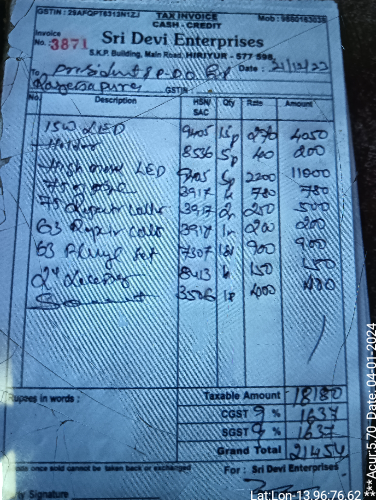 GSTIN : 29AFQPT6313N1ZJ
TAX INVOICE
CASH - CREDIT
Mob : 9880163038
Invoice
No. 3871
Sri Devi Enterprises
S.K.P. Building, Main Road, HIRIYUR - 577 598.
To President & P.D.O
Date : 21/12/23
GSTIN :
No. Description HSN/SAC Qty Rate Amount
15W LED 9405 15p 270 4050
Holder 8536 5p 40 200
High mast LED 9405 5p 2200 11000
3917 780 780
3917 2n 250 500
63 Repair 3917 1n 200 200
63 set 7307 1st 900 900
2" 8413 150 150
3506 4000 400
Rupees in words :
Taxable Amount 18180
CGST 9 % 1637
SGST 9 % 1637
Grand Total 21454
Goods once sold cannot be taken back or exchanged
For : Sri Devi Enterprises
Signature
Lat:Lon-13.96:76.62
***Acur:5.70 Date: 04-01-2024